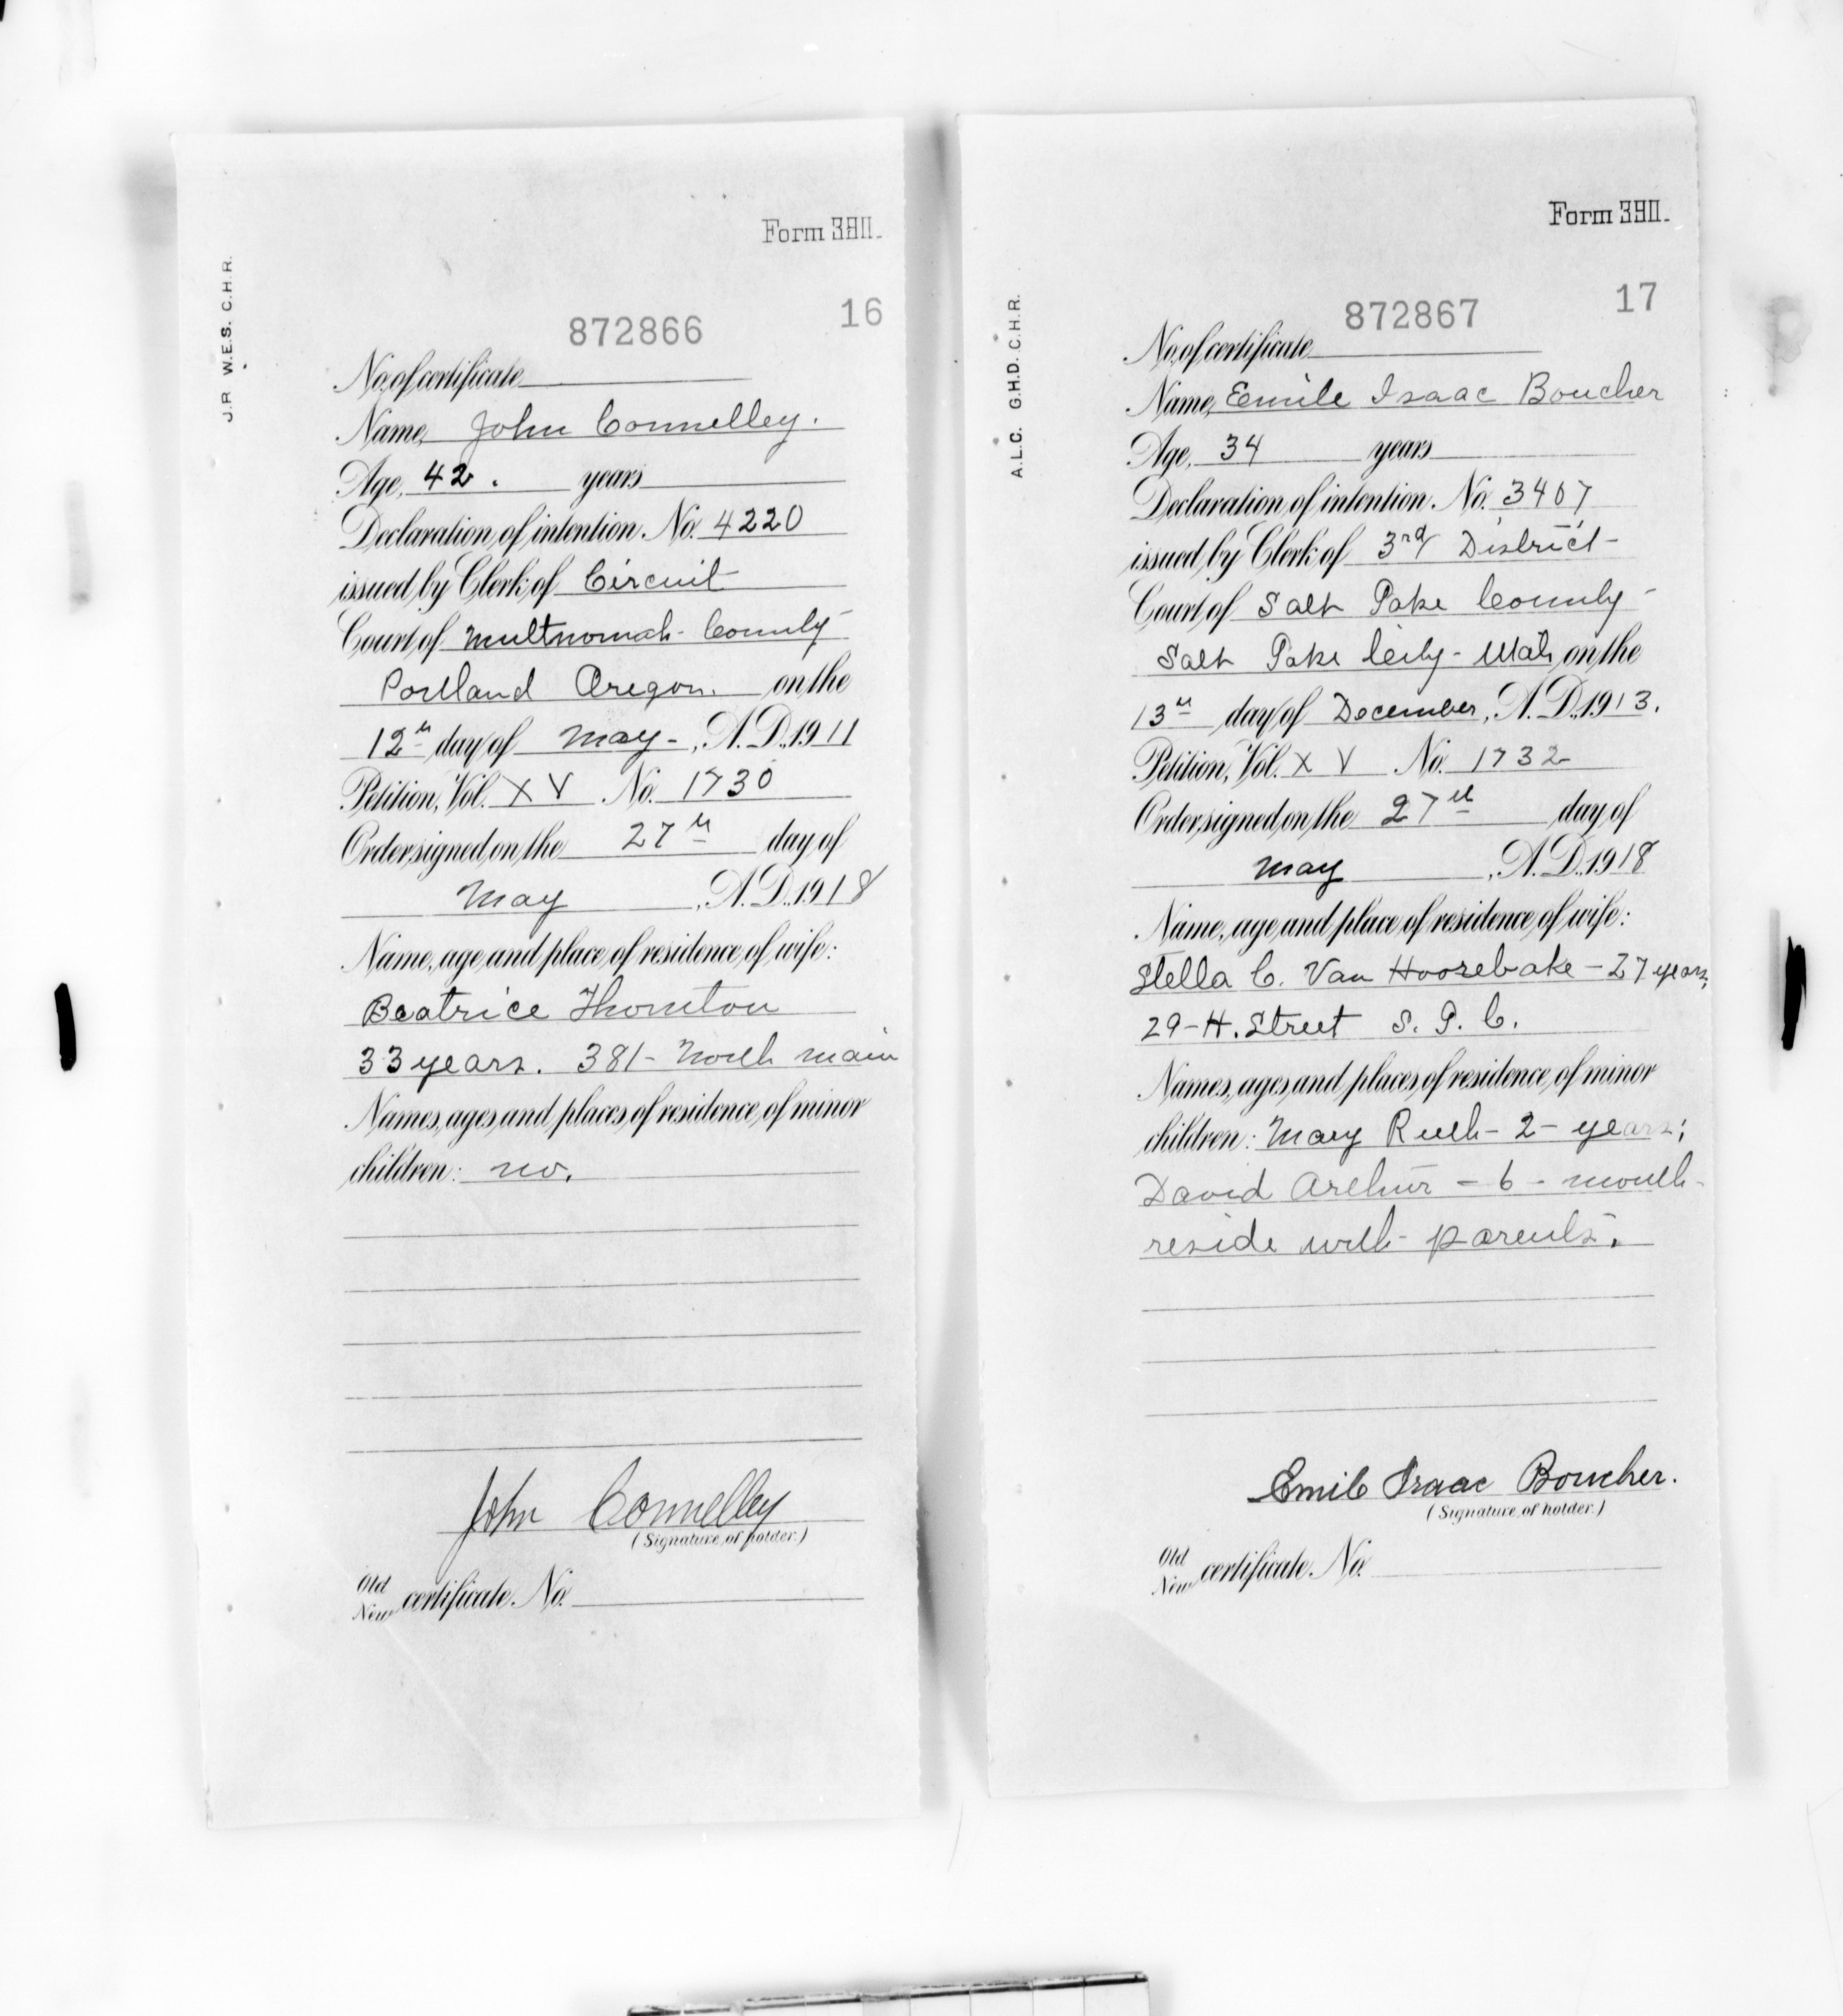 Form 380.
J.R. W.E.S. C.H.R.
872866 16
No. of certificate
Name, John Connelley.
Age, 42. years
Declaration of intention. No. 4220
issued by Clerk of Circuit
Court of Multnomah County
Portland Oregon. on the
12th day of May, A.D. 1911
Petition, Vol. XV No. 1730
Order signed on the 27th day of
May, A.D. 1918
Name, age and place of residence of wife:
Beatrice Thornton
33 years. 381 - North Main
Names, ages and places of residence of minor
children: no.
John Connelley
(Signature of holder.)
Old
New certificate No.
Form 380.
A.L.C. G.H.D. C.H.R.
872867 17
No. of certificate
Name, Emile Isaac Boucher
Age, 34 years
Declaration of intention. No. 3407
issued by Clerk of 3rd District
Court of Salt Lake County
Salt Lake City - Utah on the
13th day of December, A.D. 1913.
Petition, Vol. XV No. 1732
Order signed on the 27th day of
May, A.D. 1918
Name, age and place of residence of wife:
Stella C. Van Hoosebake - 27 years,
29 - H. Street S. L. C.
Names, ages and places of residence of minor
children: Mary Ruth - 2 - years;
David Arthur - 6 - month -
reside with parents.
Emile Isaac Boucher.
(Signature of holder.)
Old
New certificate No.